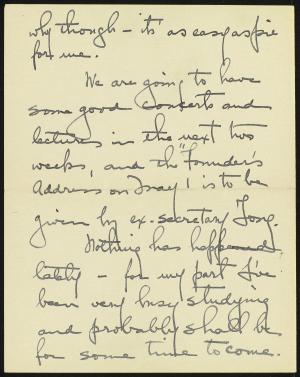 why though - it's as easy as pie
for me.
We are going to have
some good concerts and
lectures in the next two
weeks, and the "Founder's
Address on May 1 is to be
given by ex-secretary Long.
Nothing has happened
lately - for my part I've
been very busy studying
and probably shall be
for some time to come.